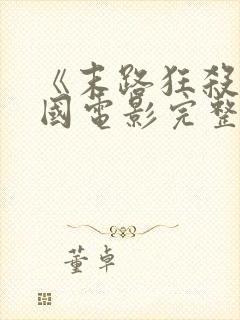 《末路狂殺
國電影完整
董卓